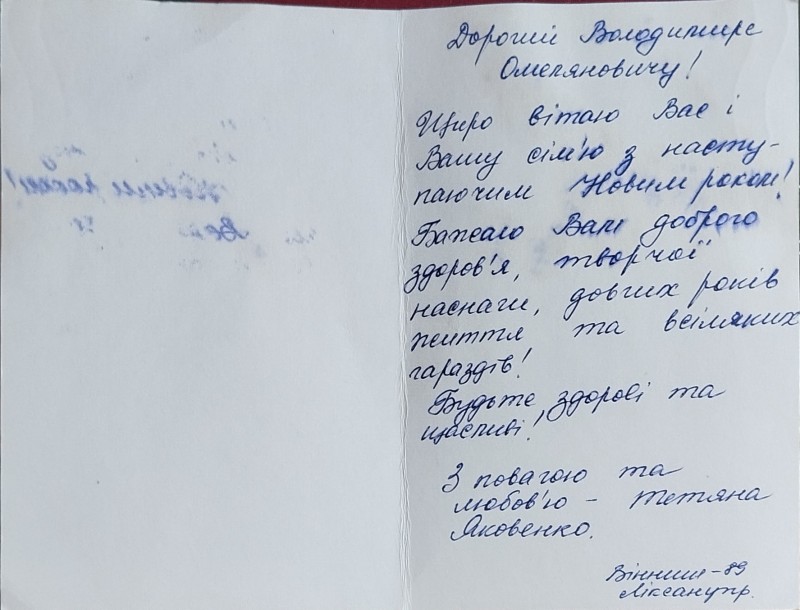 Дорогий Володимире
Омеляновичу!
Щиро вітаю Вас і
Вашу сім'ю з насту-
паючим Новим роком!
Бажаю Вам доброго
здоров'я, творчої
наснаги, довгих років
життя та всіляких
гараздів!
Будьте здорові та
щасливі!
З повагою та
любов'ю - Тетяна
Яковенко.
Вінниця - 89